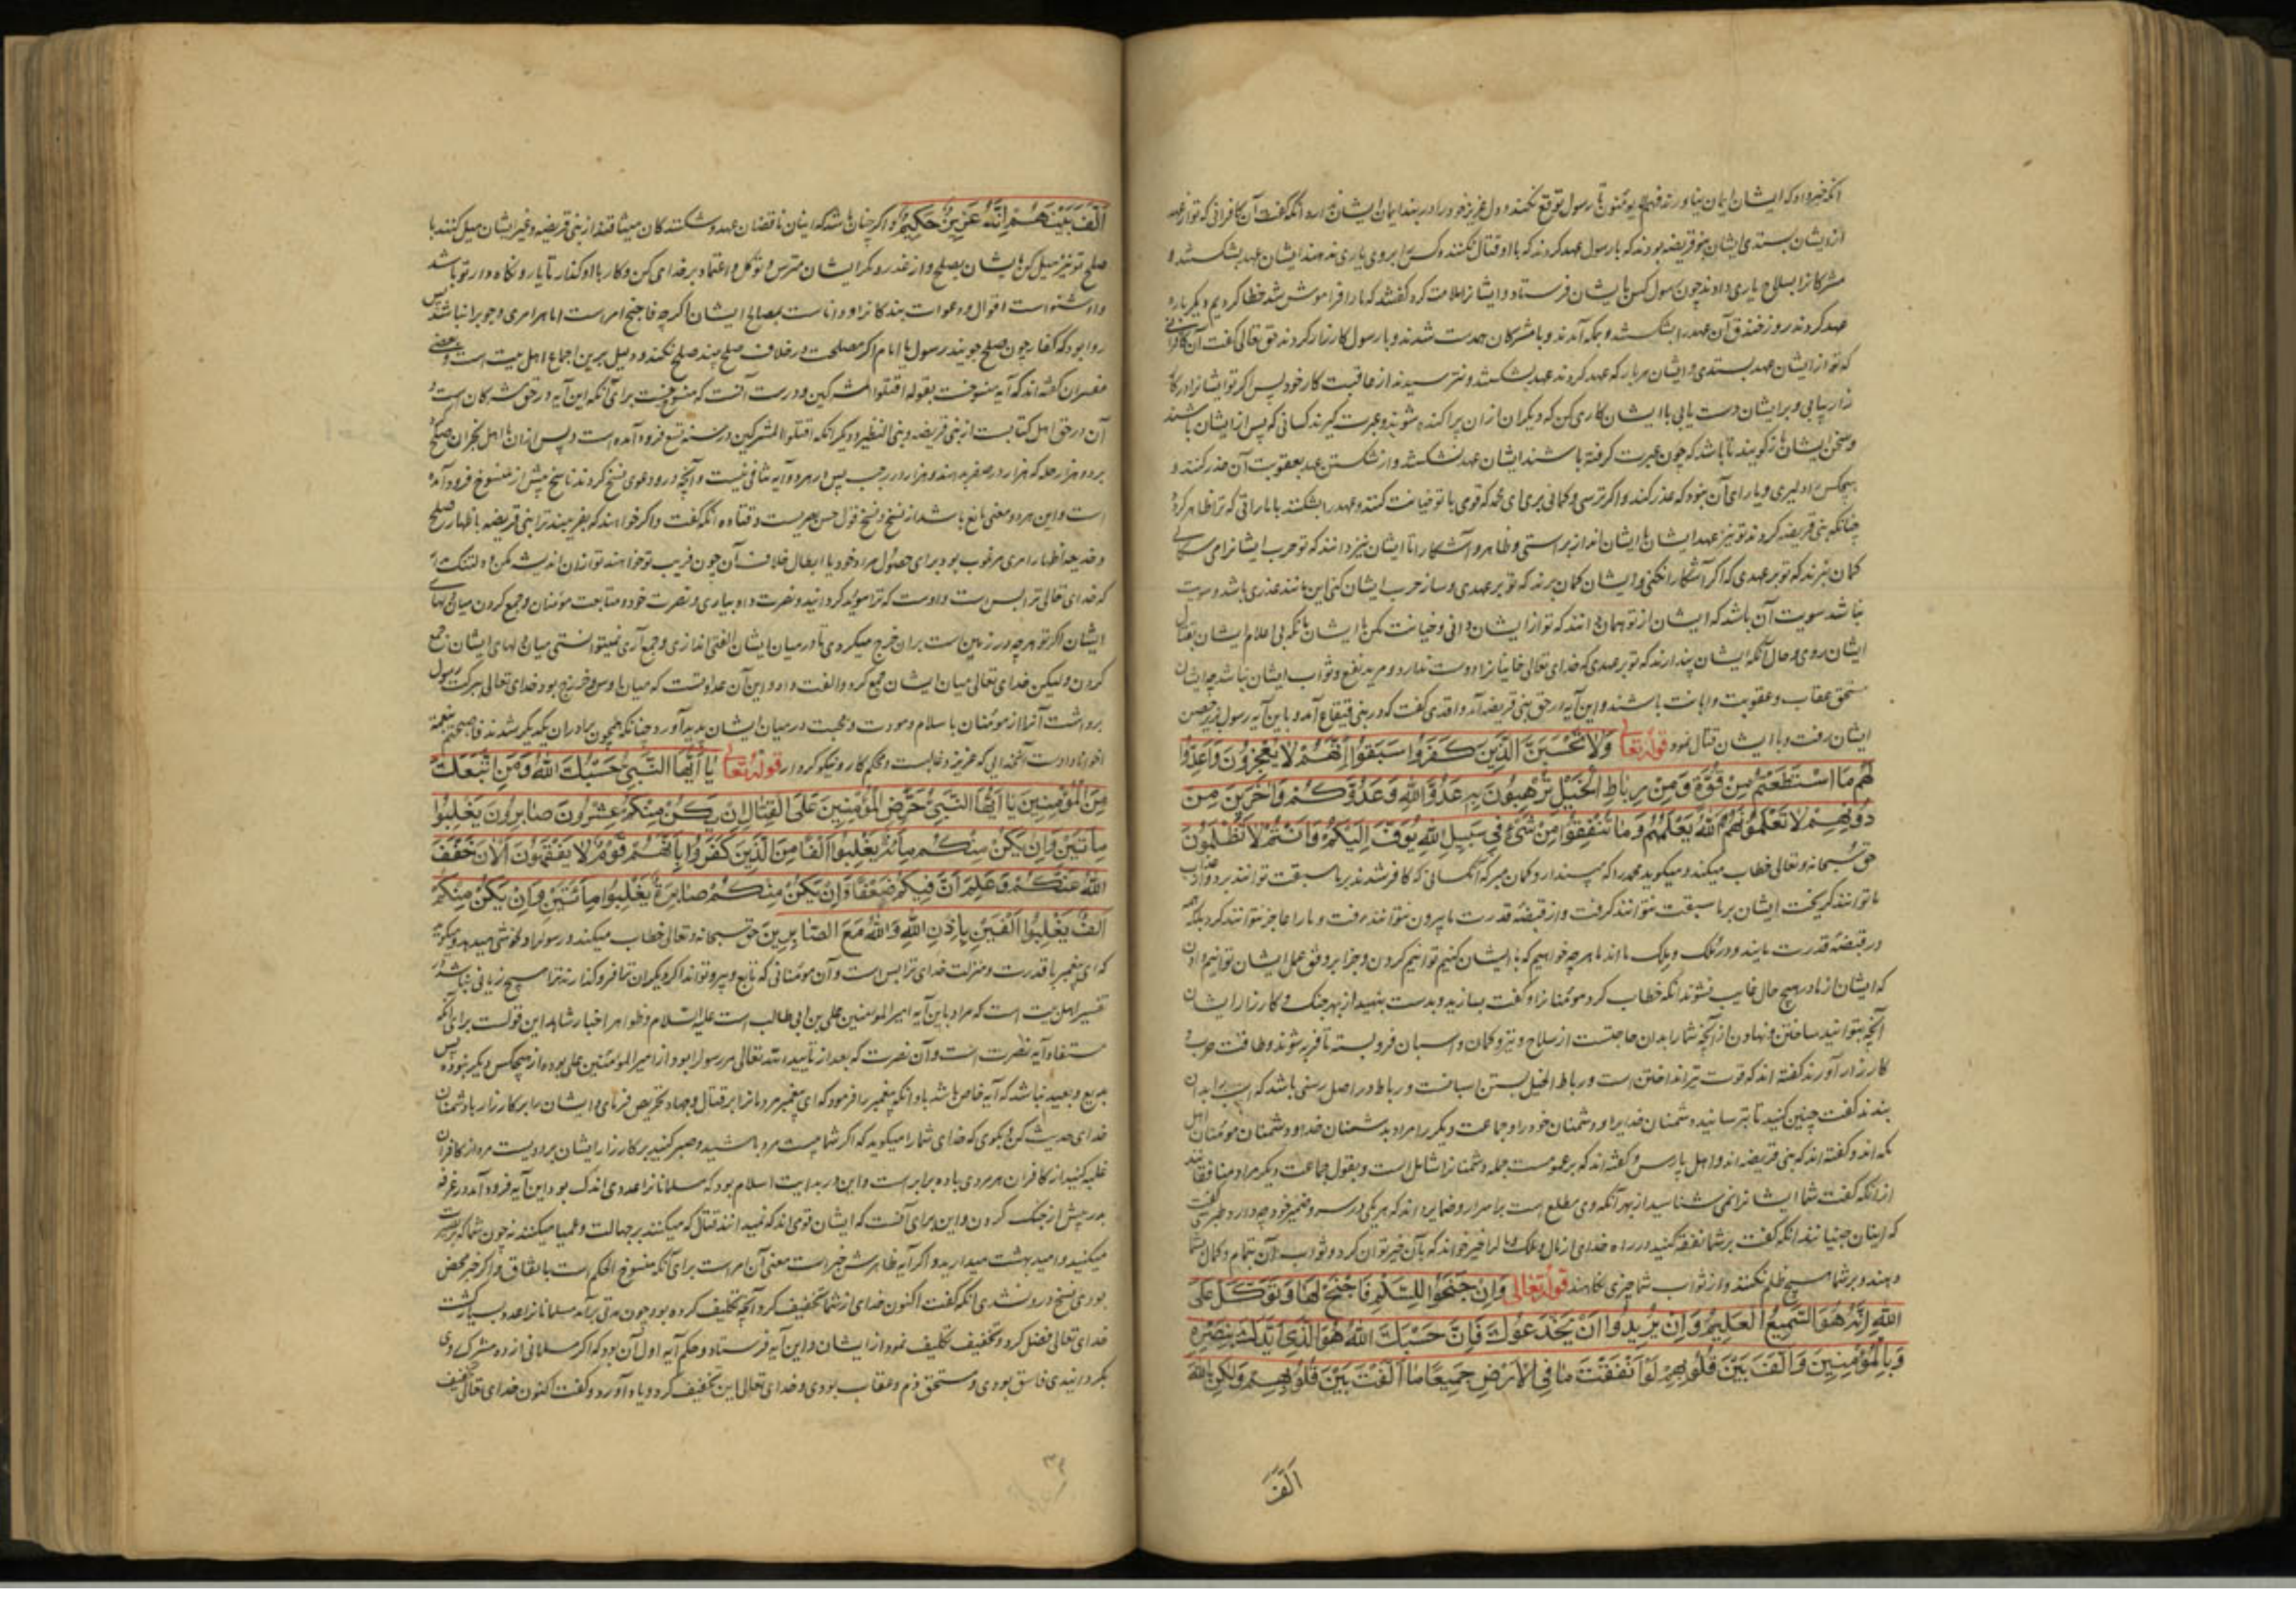 آنکه خبر داد که ایشان ایمان نیاورند فهم لا یؤمنون تا رسول توقع نکند و دل عزیز خود را در بند ایمان ایشان ندارد آنگه گفت آن کافرانی که تو از عهد
از ایشان بستدی ایشان بنو قریضه بودند که با رسول عهد کردند که با او قتال نکنند و کس را بر وی یاری ندهند ایشان عهد بشکستند و
مشرکانرا بسلاح یاری دادند چون رسول کس بایشان فرستاد و ایشانرا ملامت کرد گفتند که ما را فراموش شد خطا کردیم دیگرباره
عهد کردند روز خندق آن عهد را بشکستند و بمکه آمدند و با مشرکان همدست شدند و با رسول کارزار کردند حق تعالی گفت آن کافرانی
که تو از ایشان عهد بستدی و ایشان هر بار که عهد کردند عهد بشکستند و نترسیدند از عاقبت کار خود پس اگر تو ایشانرا در کار
زار بیابی و بر ایشان دست یابی با ایشان کاری کن که دیگران از آن پراکنده شوند و عبرت گیرند کسانی که پس از ایشان باشند
و سخن ایشان باز گویند تا باشد که چون عبرت گرفته باشند ایشان عهد نشکنند و از شکستن عهد بعقوبت آن حذر کنند و
هیچکس را دلیری و یارای آن نبود که عذر کند و اگر ترسی و گمانی بری ای محمد که قومی با تو خیانت کنند و عهد را بشکنند باماراتی که ترا ظاهر گردد
چنانکه بنی قریضه کردند تو نیز عهد ایشان با ایشان انداز براستی و ظاهر و آشکارا تا ایشان نیز دانند که تو حرب ایشانرا می سگالی
گمان نبرند که تو بر عهدی که اگر آشکارا نکنی و ایشان گمان برند که تو بر عهدی و ساز حرب ایشان کنی این مانند عذری باشد و سویت
نباشد سویت آن باشد که ایشان از تو همان دانند که تو از ایشان دانی و خیانت مکن با ایشان بآنکه بی اعلام ایشان بقتال
ایشان روی و حال آنکه ایشان پندارند که تو بر عهدی که خدای تعالی خاینانرا دوست ندارد و مرید نفع و ثواب ایشان نباشد چه ایشان
مستحق عقاب و عقوبت و اهانت باشند و این آیه در حق بنی قریضه آمد و واقدی گفت که در بنی قینقاع آمد و باین آیه رسول بزیر حصن
ایشان رفت و با ایشان قتال نمود قوله تعالی وَلَا تَحْسَبَنَّ الَّذِينَ كَفَرُوا سَبَقُوا إِنَّهُمْ لَا يُعْجِزُونَ وَأَعِدُّوا
لَهُمْ مَا اسْتَطَعْتُمْ مِنْ قُوَّةٍ وَمِنْ رِبَاطِ الْخَيْلِ تُرْهِبُونَ بِهِ عَدُوَّ اللَّهِ وَعَدُوَّكُمْ وَآخَرِينَ مِنْ
دُونِهِمْ لَا تَعْلَمُونَهُمُ اللَّهُ يَعْلَمُهُمْ وَمَا تُنْفِقُوا مِنْ شَيْءٍ فِي سَبِيلِ اللَّهِ يُوَفَّ إِلَيْكُمْ وَأَنْتُمْ لَا تُظْلَمُونَ
حق سبحانه و تعالی خطاب میکند و میگوید محمد را که مپندار و گمان مبر که آنکسانی که کافر شدند بر ما سبقت توانند برد و از عذاب
ما توانند گریخت ایشان بر ما سبقت نتوانند گرفت و از قبضه قدرت ما بیرون نتوانند رفت و ما را عاجز نتوانند کرد بلکه همه
در قبضه قدرت مایند و در ملک و ملک مااند ما هر چه خواهیم که با ایشان کنیم توانیم کردن و جزا بر وفق عمل ایشان توانیم دادن
که ایشان از ما در هیچ حال غایب نشوند آنکه خطاب کرد مومنانرا و گفت بسازید و بدست بنهید از بهر جنک و کارزار ایشان
آنچه بتوانید ساختن و نهادن از آنچه شما را بدان حاجتست از سلاح و تیر و کمان و اسبان فرو بسته تا فربه شوند و طاقت حرب و
کارزار آورند گفته اند که قوت تیر انداختن است و رباط الخیل بستن اسبانست و رباط در اصل رسنی باشد که اسب را بدان
بندند گفت چنین کنید تا بترسانید دشمنان خدایرا و دشمنان خود را و جماعت دیگر را مراد بدشمنان خدا و دشمنان مومنان اهل
مکه اند و گفته اند که بنی قریضه اند و اهل پارس و گفته اند که بر عموم است جمله دشمنانرا شامل است و بقول جماعت دیگر مراد منافقانند
از آنکه گفت شما ایشانرا نمی شناسید از بهر آنکه وی مطلع است بر اسرار و ضمایر داند که هر یکی در سر و ضمیر خود چه دارد و طبری گفت
که اینان جنیانند آنکه گفت هر شما نفقه کنید در راه خدای از مال و ملک و ما لرا خیر خواند که بآن خیر توان کرد و ثواب آن بتمام و کمال بشما
دهند و بر شما هیچ ظلم نکنند و از ثواب شما چیزی نکاهند قوله تعالی وَإِنْ جَنَحُوا لِلسَّلْمِ فَاجْنَحْ لَهَا وَتَوَكَّلْ عَلَى
اللَّهِ إِنَّهُ هُوَ السَّمِيعُ الْعَلِيمُ وَإِنْ يُرِيدُوا أَنْ يَخْدَعُوكَ فَإِنَّ حَسْبَكَ اللَّهُ هُوَ الَّذِي أَيَّدَكَ بِنَصْرِهِ
وَبِالْمُؤْمِنِينَ وَأَلَّفَ بَيْنَ قُلُوبِهِمْ لَوْ أَنْفَقْتَ مَا فِي الْأَرْضِ جَمِيعًا مَا أَلَّفْتَ بَيْنَ قُلُوبِهِمْ وَلَكِنَّ اللَّهَ
اَلَّفَ
أَلَّفَ بَيْنَهُمْ إِنَّهُ عَزِيزٌ حَكِيمٌ و اگر چنان باشد که اینان ناقضان عهد و شکنندکان میثاقند از بنی قریضه و غیر ایشان میل کنند با
صلح تو نیز میل کن با ایشان بصلح و از غدر و مکر ایشان مترس و توکل و اعتماد بر خدای کن و کار با او گذار تا یار و نگاه دار تو باشد
و او شنواست اقوال و دعوات بندکانرا و داناست بمصالح ایشان اگر چه فاجنح امر است اما هر امری وجوب را نباشد پس
روا بود که کفار چون صلح جویند رسول یا امام اگر مصلحت در خلاف صلح بیند صلح نکند و دلیل برین اجماع اهل بیت است و بعضی
مفسران گفته اند که آیه منسوخست بقوله اقتلوا المشرکین و درست آنست که منسوخ نیست برای آنکه این آیه در حق مشرکان است و
آن در حق اهل کتابست از بنی قریضه و بنی النظیر و دیگر آنکه اقتلوا المشرکین در سنه تسع فرود آمده است و پس از آن با اهل نجران صلح کرد
بر دو هزار حله که هزار در صفر بدهند و هزار در رجب پس در هر دو آیه تنافی نیست و آنچه درو دعوی نسخ کردند ناسخ پیش از منسوخ فرود آمده
است و این هر دو معنی مانع باشد از نسخ و نسخ قول حسن بصریست و قتاده آنگه گفت و اگر خواهند که بفریبند ترا بنی قریضه باظهار صلح
و خدیعه اظهار امری مرغوب بود برای حصول مراد خود با ابطال خلاف آن چون فریب تو خواهند تو از آن اندیشه مکن و
که خدای تعالی ترا بس است و اوست که ترا موید کردانید و نصرت داد بیاری و نصرت خود و متابعت مؤمنان و جمع کردن میان دلهای
ایشان اگر تو هر چه در زمین است بر آن خرج میکردی تا در میان ایشان الفتی اندازی و جمع آری نمیتوانستی میان دلهای ایشان جمع
کردن ولیکن خدای تعالی میان ایشان جمع کرد و الفت داد و این آن عداوتست که میان اوس و خزرج بود خدای تعالی ببرکت رسول
برداشت آنرا از مومنان باسلام و مودت و محبت در میان ایشان پدید آورد چنانکه همچون برادران یکدیگر شدند فاصبحتم بنعمته
اخوانا و اوست آنخدایی که عزیز و غالبست و محکم کار و نیکو کردار قوله تعالی يَا أَيُّهَا النَّبِيُّ حَسْبُكَ اللَّهُ وَمَنِ اتَّبَعَكَ
مِنَ الْمُؤْمِنِينَ يَا أَيُّهَا النَّبِيُّ حَرِّضِ الْمُؤْمِنِينَ عَلَى الْقِتَالِ إِنْ يَكُنْ مِنْكُمْ عِشْرُونَ صَابِرُونَ يَغْلِبُوا
مِائَتَيْنِ وَإِنْ يَكُنْ مِنْكُمْ مِائَةٌ يَغْلِبُوا أَلْفًا مِنَ الَّذِينَ كَفَرُوا بِأَنَّهُمْ قَوْمٌ لَا يَفْقَهُونَ الْآنَ خَفَّفَ
اللَّهُ عَنْكُمْ وَعَلِمَ أَنَّ فِيكُمْ ضَعْفًا وَإِنْ يَكُنْ مِنْكُمْ صَابِرَةٌ يَغْلِبُوا مِائَتَيْنِ وَإِنْ يَكُنْ مِنْكُمْ
أَلْفٌ يَغْلِبُوا أَلْفَيْنِ بِإِذْنِ اللَّهِ وَاللَّهُ مَعَ الصَّابِرِينَ حق سبحانه و تعالی خطاب میکند و رسولرا دلخوشی میدهد و میگوید
که ای پیغمبر با قدرت و منزلت خدای ترا بس است و آن مومنانی که تابع و پیرو تواند اگر دیگران ترا فرو گذارند ترا هیچ زیانی نباشد و در
تفسیر اهل بیت است که مراد باین آیه امیر المومنین علی بن ابی طالب است علیه السلام و ظواهر اخبار شاهد این قولست برای آنکه
مستفاد آیه نصرت است و آن نصرت که بعد از تایید الله تعالی مر رسولرا بود از امیر المومنین علی بود و از هیچکس دیگر نبود پس
بدیع و بعید نباشد که آیه خاص باشد باو آنگه پیغمبر را فرمود که ای پیغمبر مردمانرا بر قتال و جهاد تحریص فرمای و ایشان را بر کارزار با دشمنان
خدای حدیث کن و بگوی که خدای شما را میگوید که اگر شما بیست مرد باشید و صبر کنید بر کارزار ایشان بر دویست مرد از کافران
غلبه کنید از کافران هر مردی با ده برابر است و این در بدایت اسلام بود که مسلمانانرا عددی اندک بود این آیه فرود آمد در غزوه
بدر پیش از جنک کردن و این برای آنست که ایشان قومی اند که نمیدانند قتال که میکنند بر جهالت و عمیا میکنند نه چون شما که بر بصیرت
میکنید و امید بهشت میدارید و اگر آیه ظاهرش خبر است معنی آن امر است برای آنکه منسوخ الحکم است باتفاق و اگر خبر محض
بودی نسخ درو نشدی آنگه گفت اکنون خدای از شما تخفیف کرد آنچه تکلیف کرده بود چون مدتی بر آمد مسلمانانرا عدد بسیار گشت
خدای تعالی فضل کرد و تخفیف تکلیف نمود از ایشان و این آیه فرستاد و حکم آیه اول آن بود که اگر مسلمانی از ده مشرک روی
بگردانیدی فاسق بودی و مستحق ذم و عقاب بودی و خدای تعالی این تخفیف کرد و با دو آورد و گفت اکنون خدای تعالی تخفیف